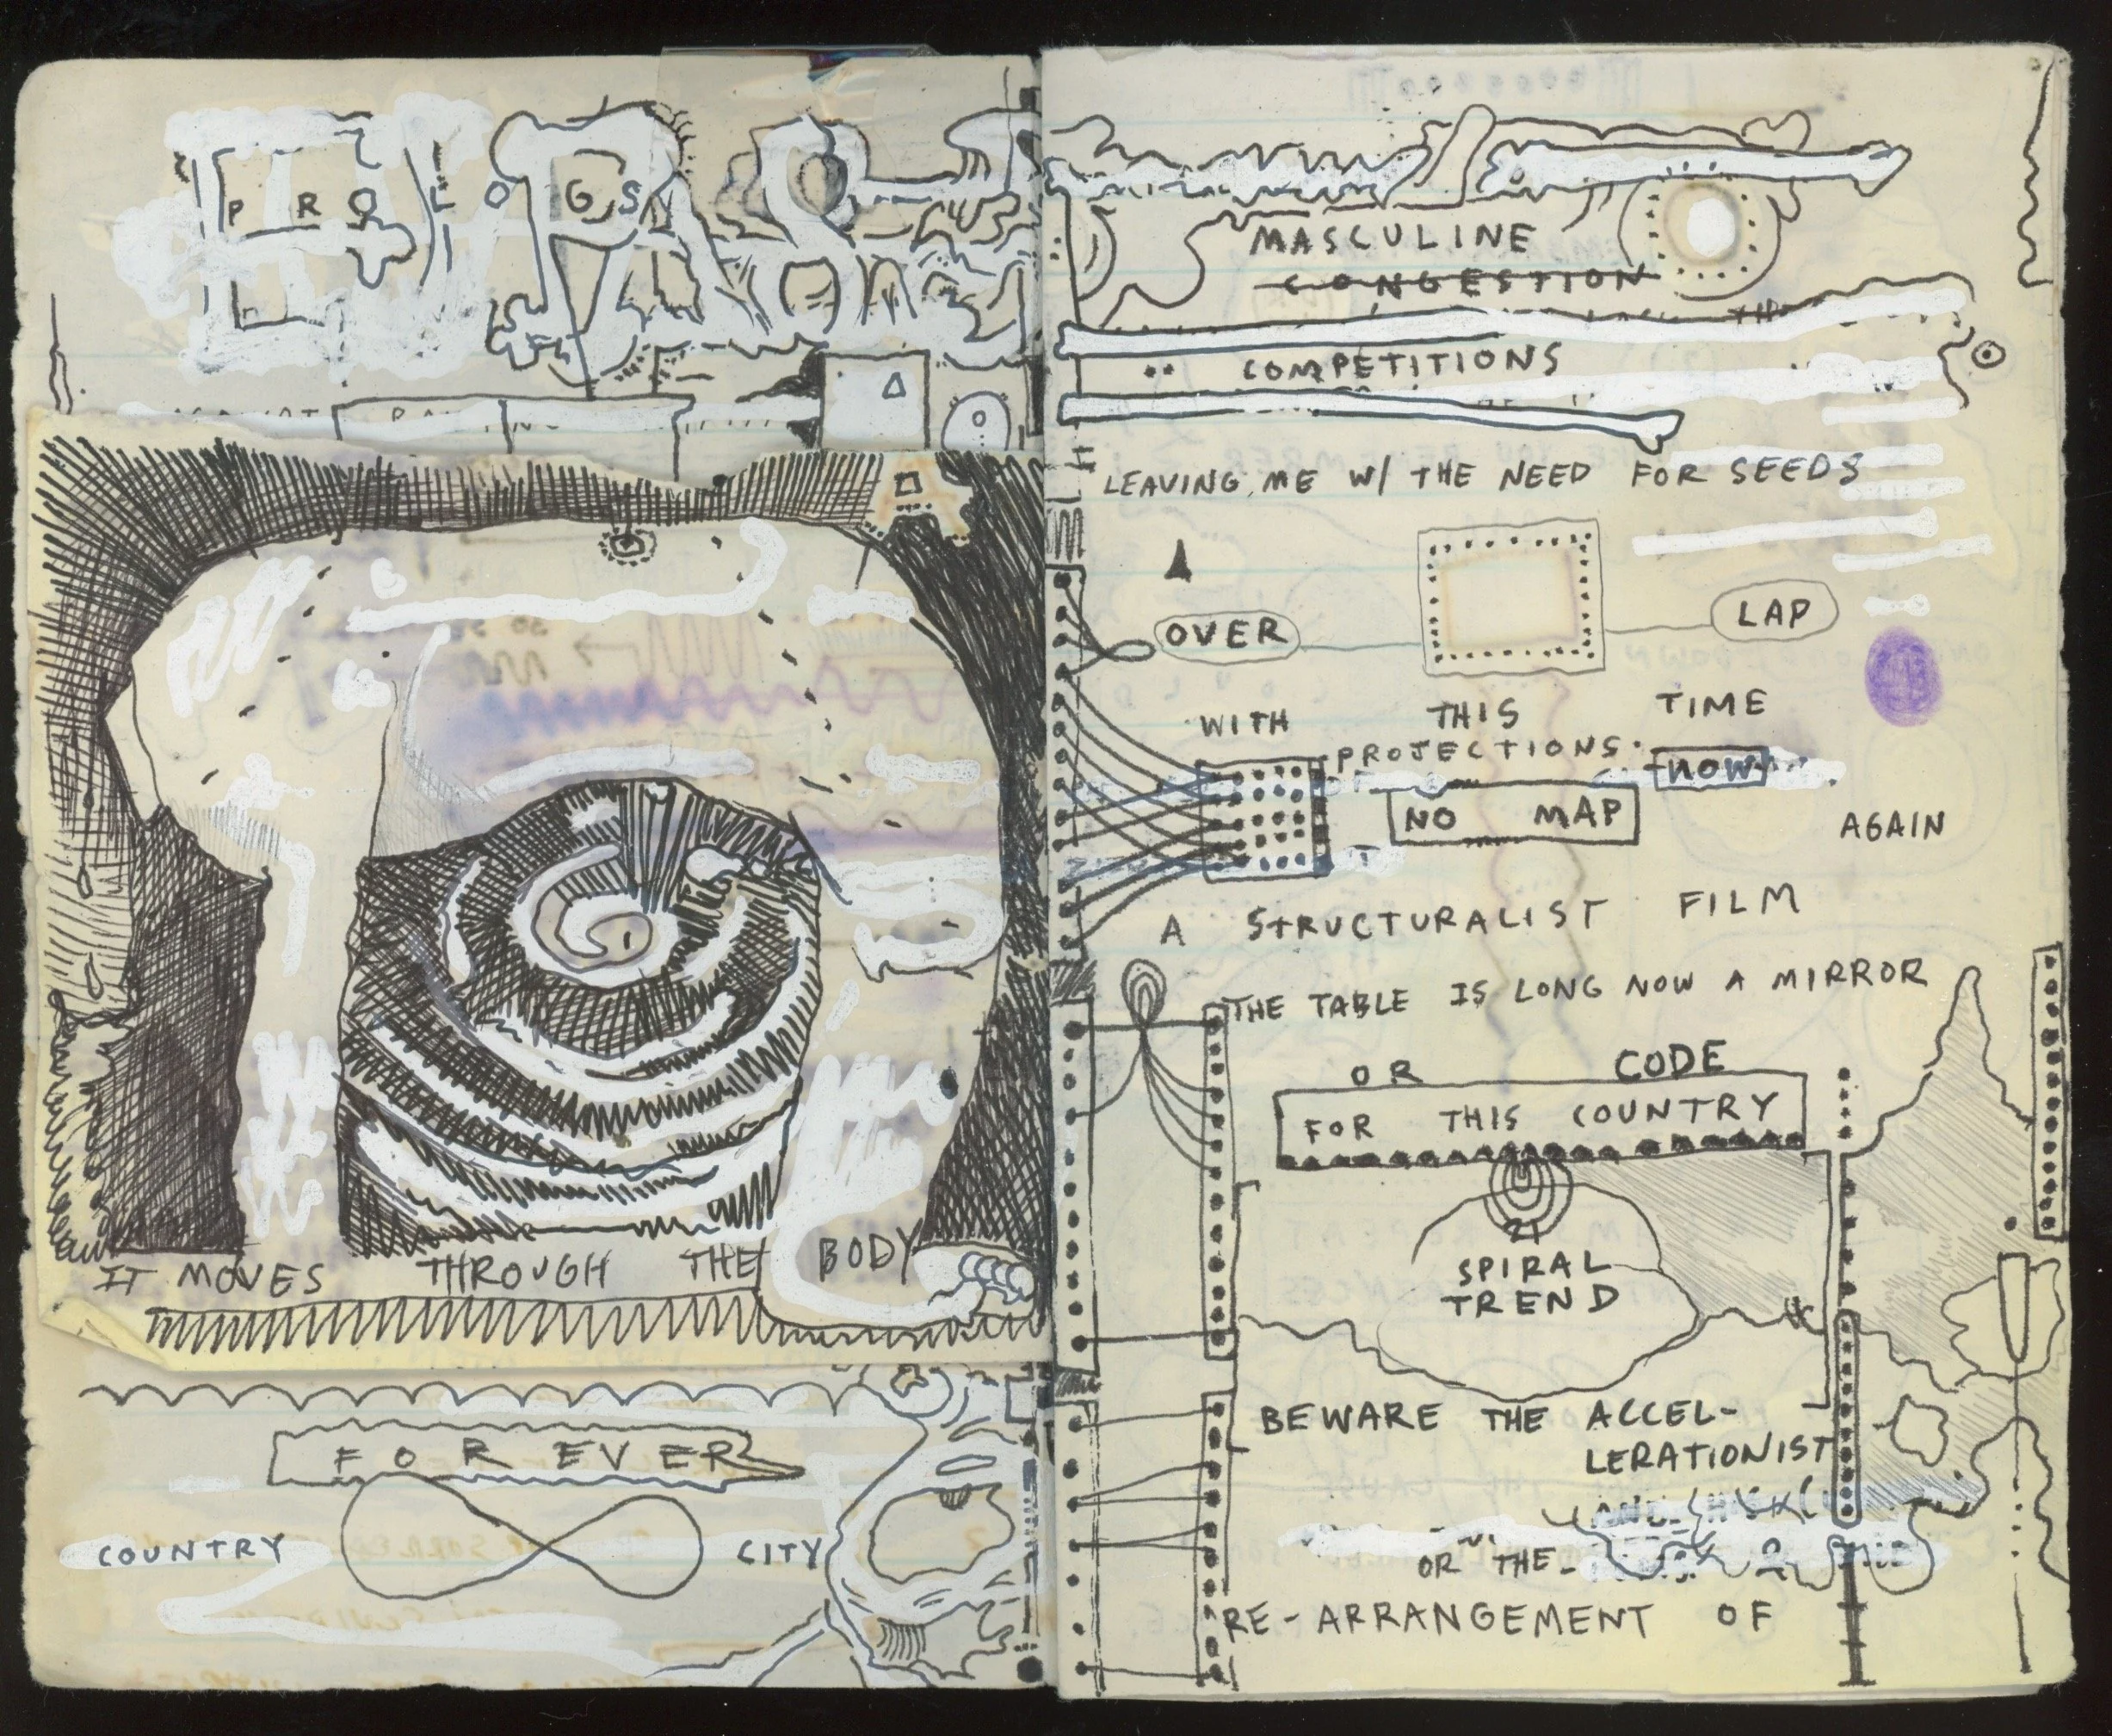 PROLOGS
IT MOVES THROUGH THE BODY
FOREVER
COUNTRY CITY
MASCULINE
CONGESTION
COMPETITIONS
LEAVING ME W/ THE NEED FOR SEEDS
OVER LAP
WITH THIS TIME
PROJECTIONS NOW
NO MAP
AGAIN
A STRUCTURALIST FILM
THE TABLE IS LONG NOW A MIRROR
OR CODE
FOR THIS COUNTRY
SPIRAL
TREND
BEWARE THE ACCEL-
LERATIONIST
OR THE
RE-ARRANGEMENT OF